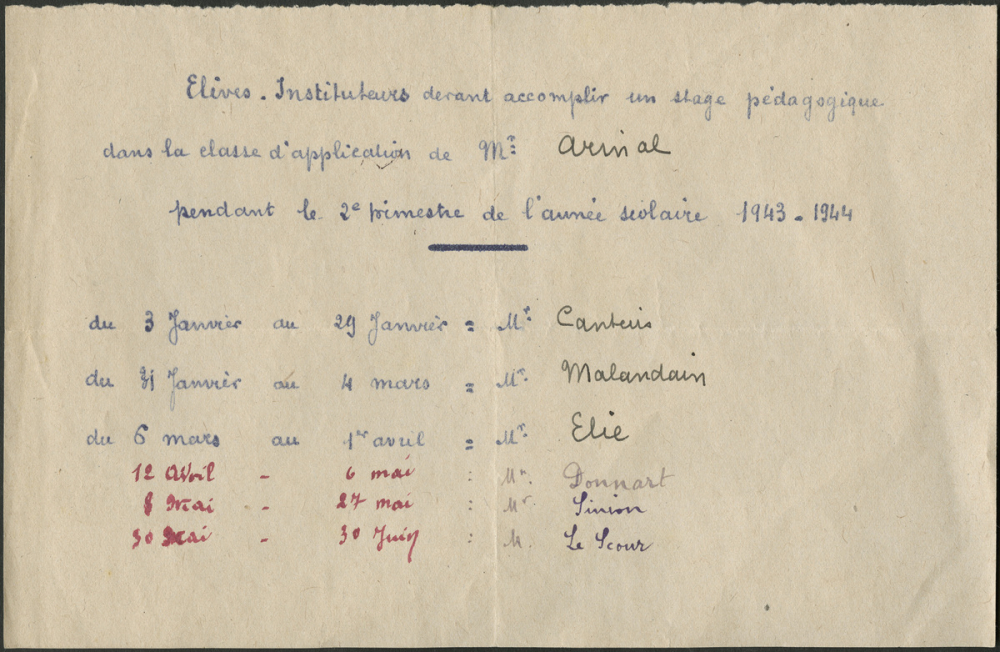 Elèves-Instituteurs devant accomplir un stage pédagogique
dans la classe d'application de Mr
pendant le 2e trimestre de l'année scolaire 1943-1944
du 3 Janvier au 29 Janvier = Mr.
du 31 Janvier au 4 mars = Mr. Malandain
du 6 mars au 1er avril = Mr. Elie
12 Avril - 6 mai : Mr. Donnart
8 Mai - 27 mai : Mr. Sinion
30 Mai - 30 Juin : M. Le Scour